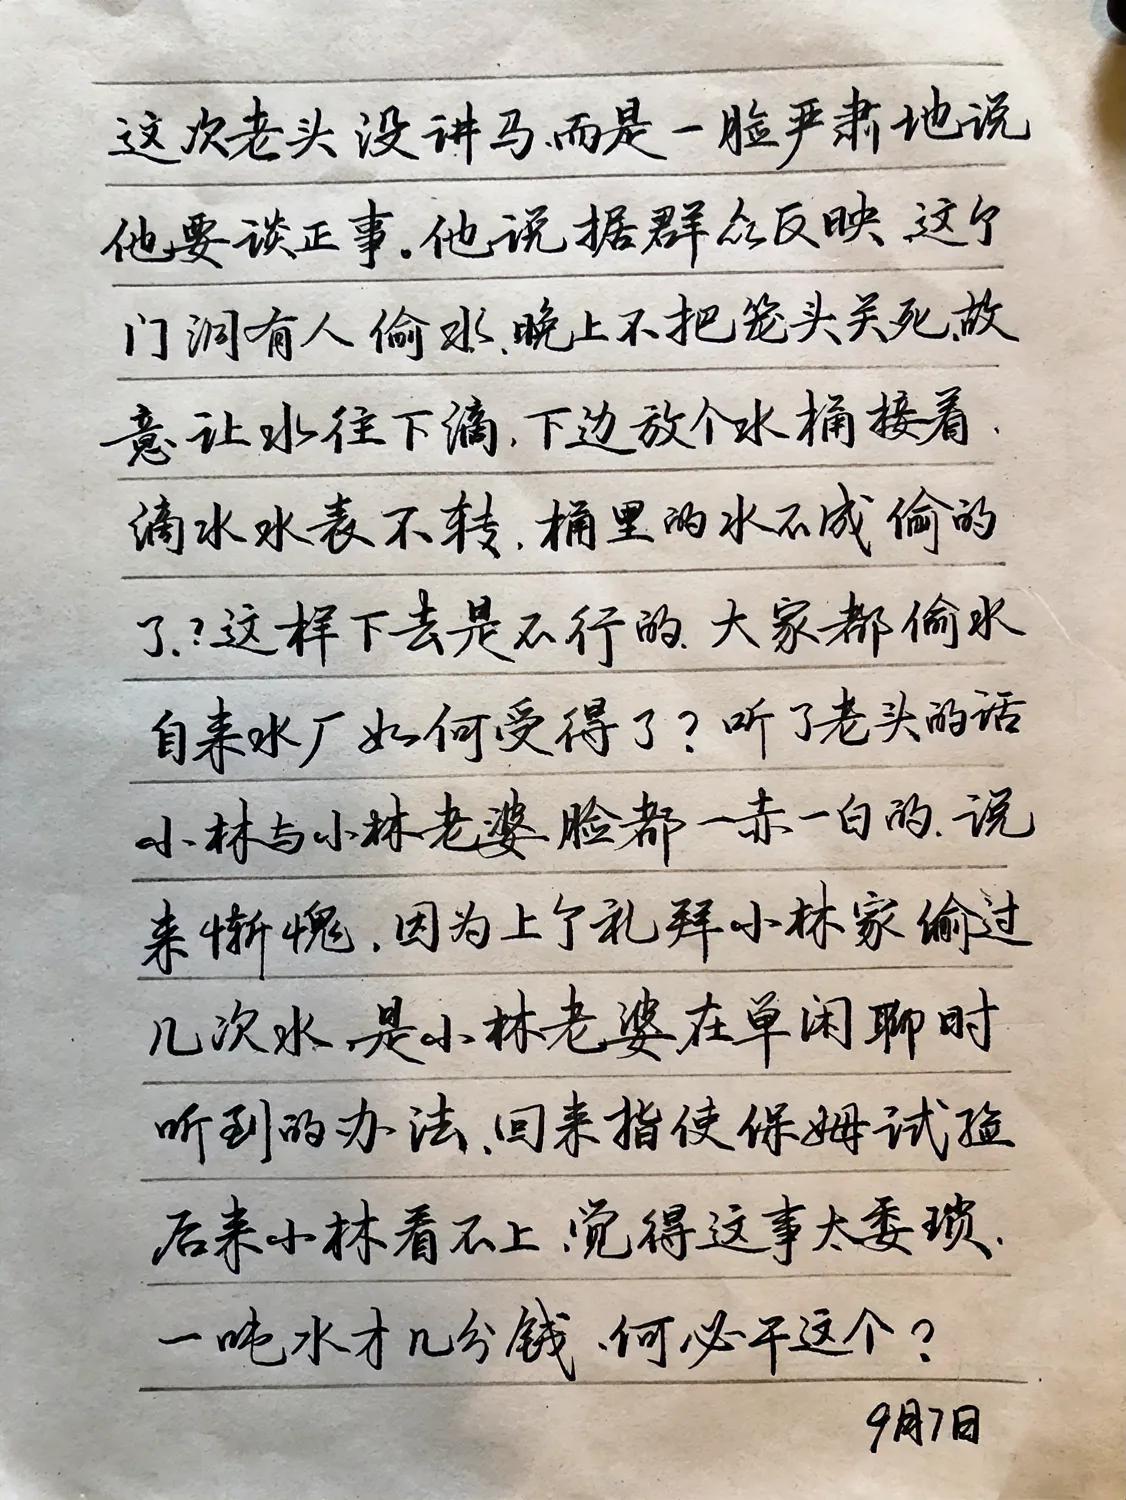 这次老头没讲马、而是一脸严肃地说
他要谈正事。他说据群众反映、这个
门洞有人偷水、晚上不把笼头关死、故
意让水往下滴、下边放个水桶接着、
滴水水表不转、桶里的水不成偷的
了、?这样下去是不行的、大家都偷水
自来水厂如何受得了?听了老头的话
小林与小林老婆脸都一赤一白的、说
来惭愧、因为上个礼拜小林家偷过
几次水、是小林老婆在单闲聊时
听到的办法、回来指使保姆试验
后来小林看不上、觉得这事太委琐、
一吨水才几分钱、何必干这个?
9月7日